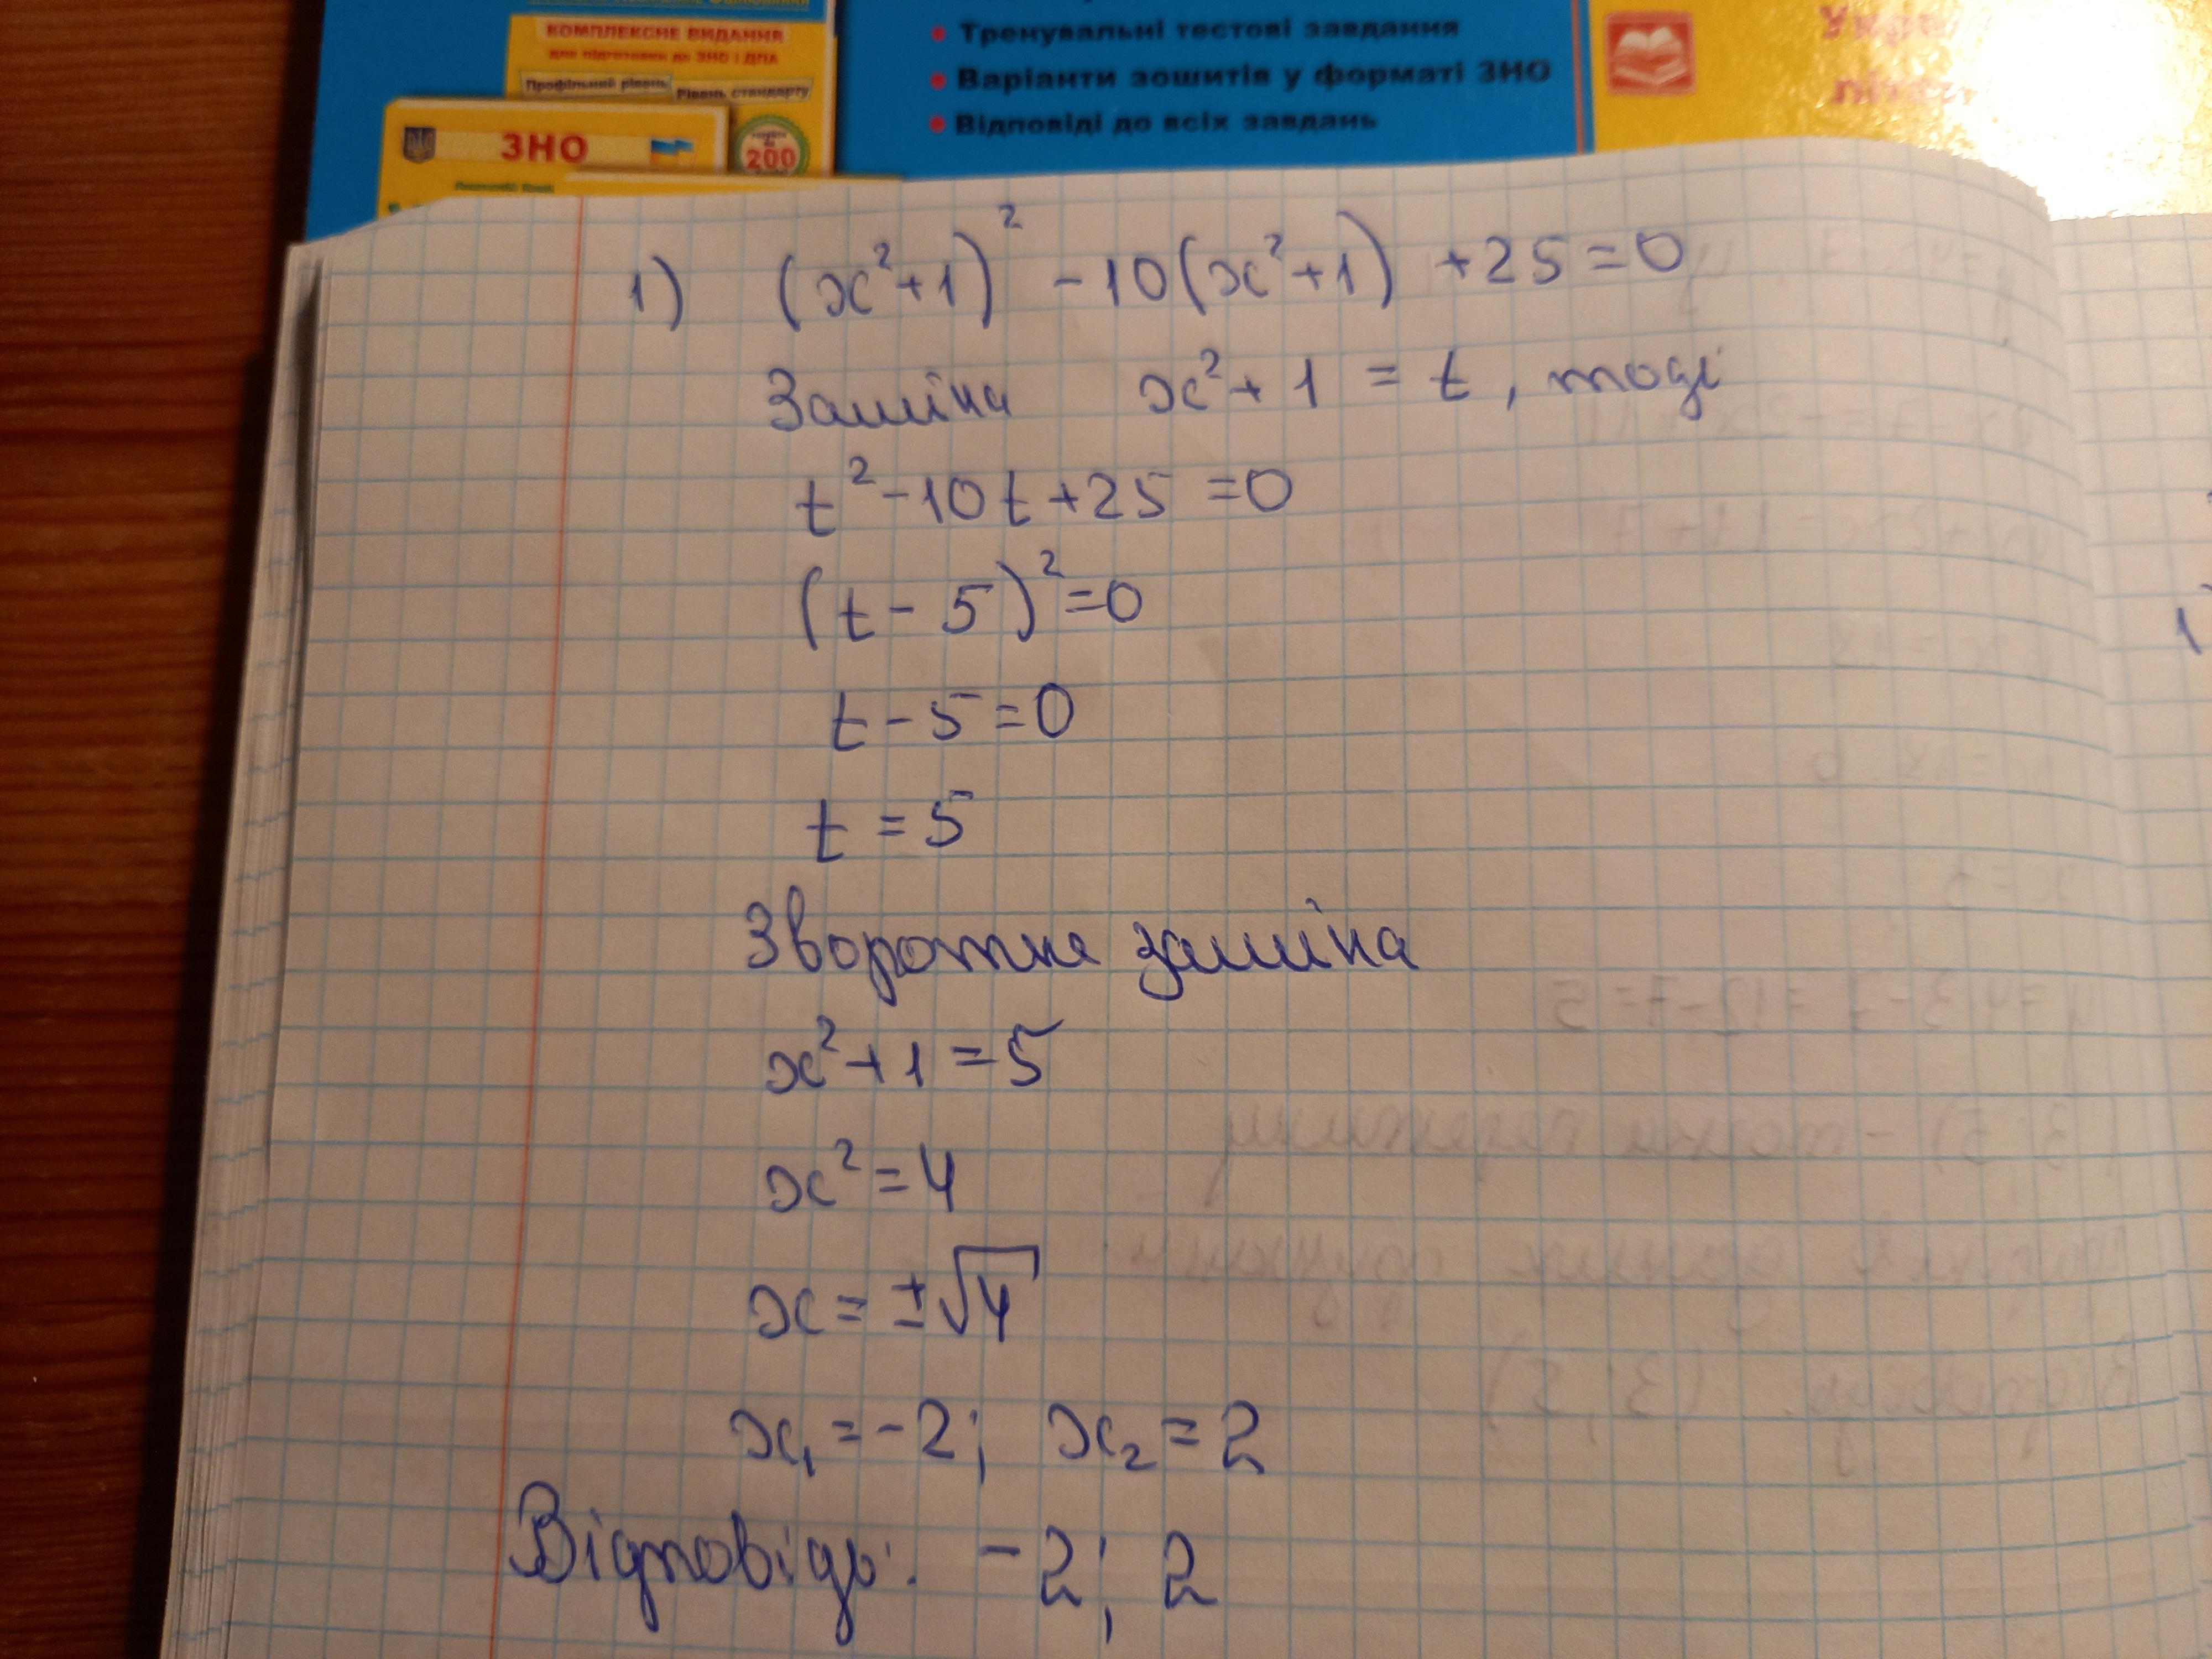 КОМПЛЕКСНЕ ВИДАННЯ
для підготовки до ЗНО і ДПА
Профільний рівень
Рівень стандарту
ЗНО
200
Тренувальні тестові завдання
Варіанти зошитів у форматі ЗНО
Відповіді до всіх завдань
1) (x²+1)² -10(x²+1) +25=0
Заміна x²+1 = t, тоді
t²-10t+25=0
(t-5)²=0
t-5=0
t=5
Зворотня заміна
x²+1=5
x²=4
x=±√4
x₁=-2; x₂=2
Відповідь: -2; 2